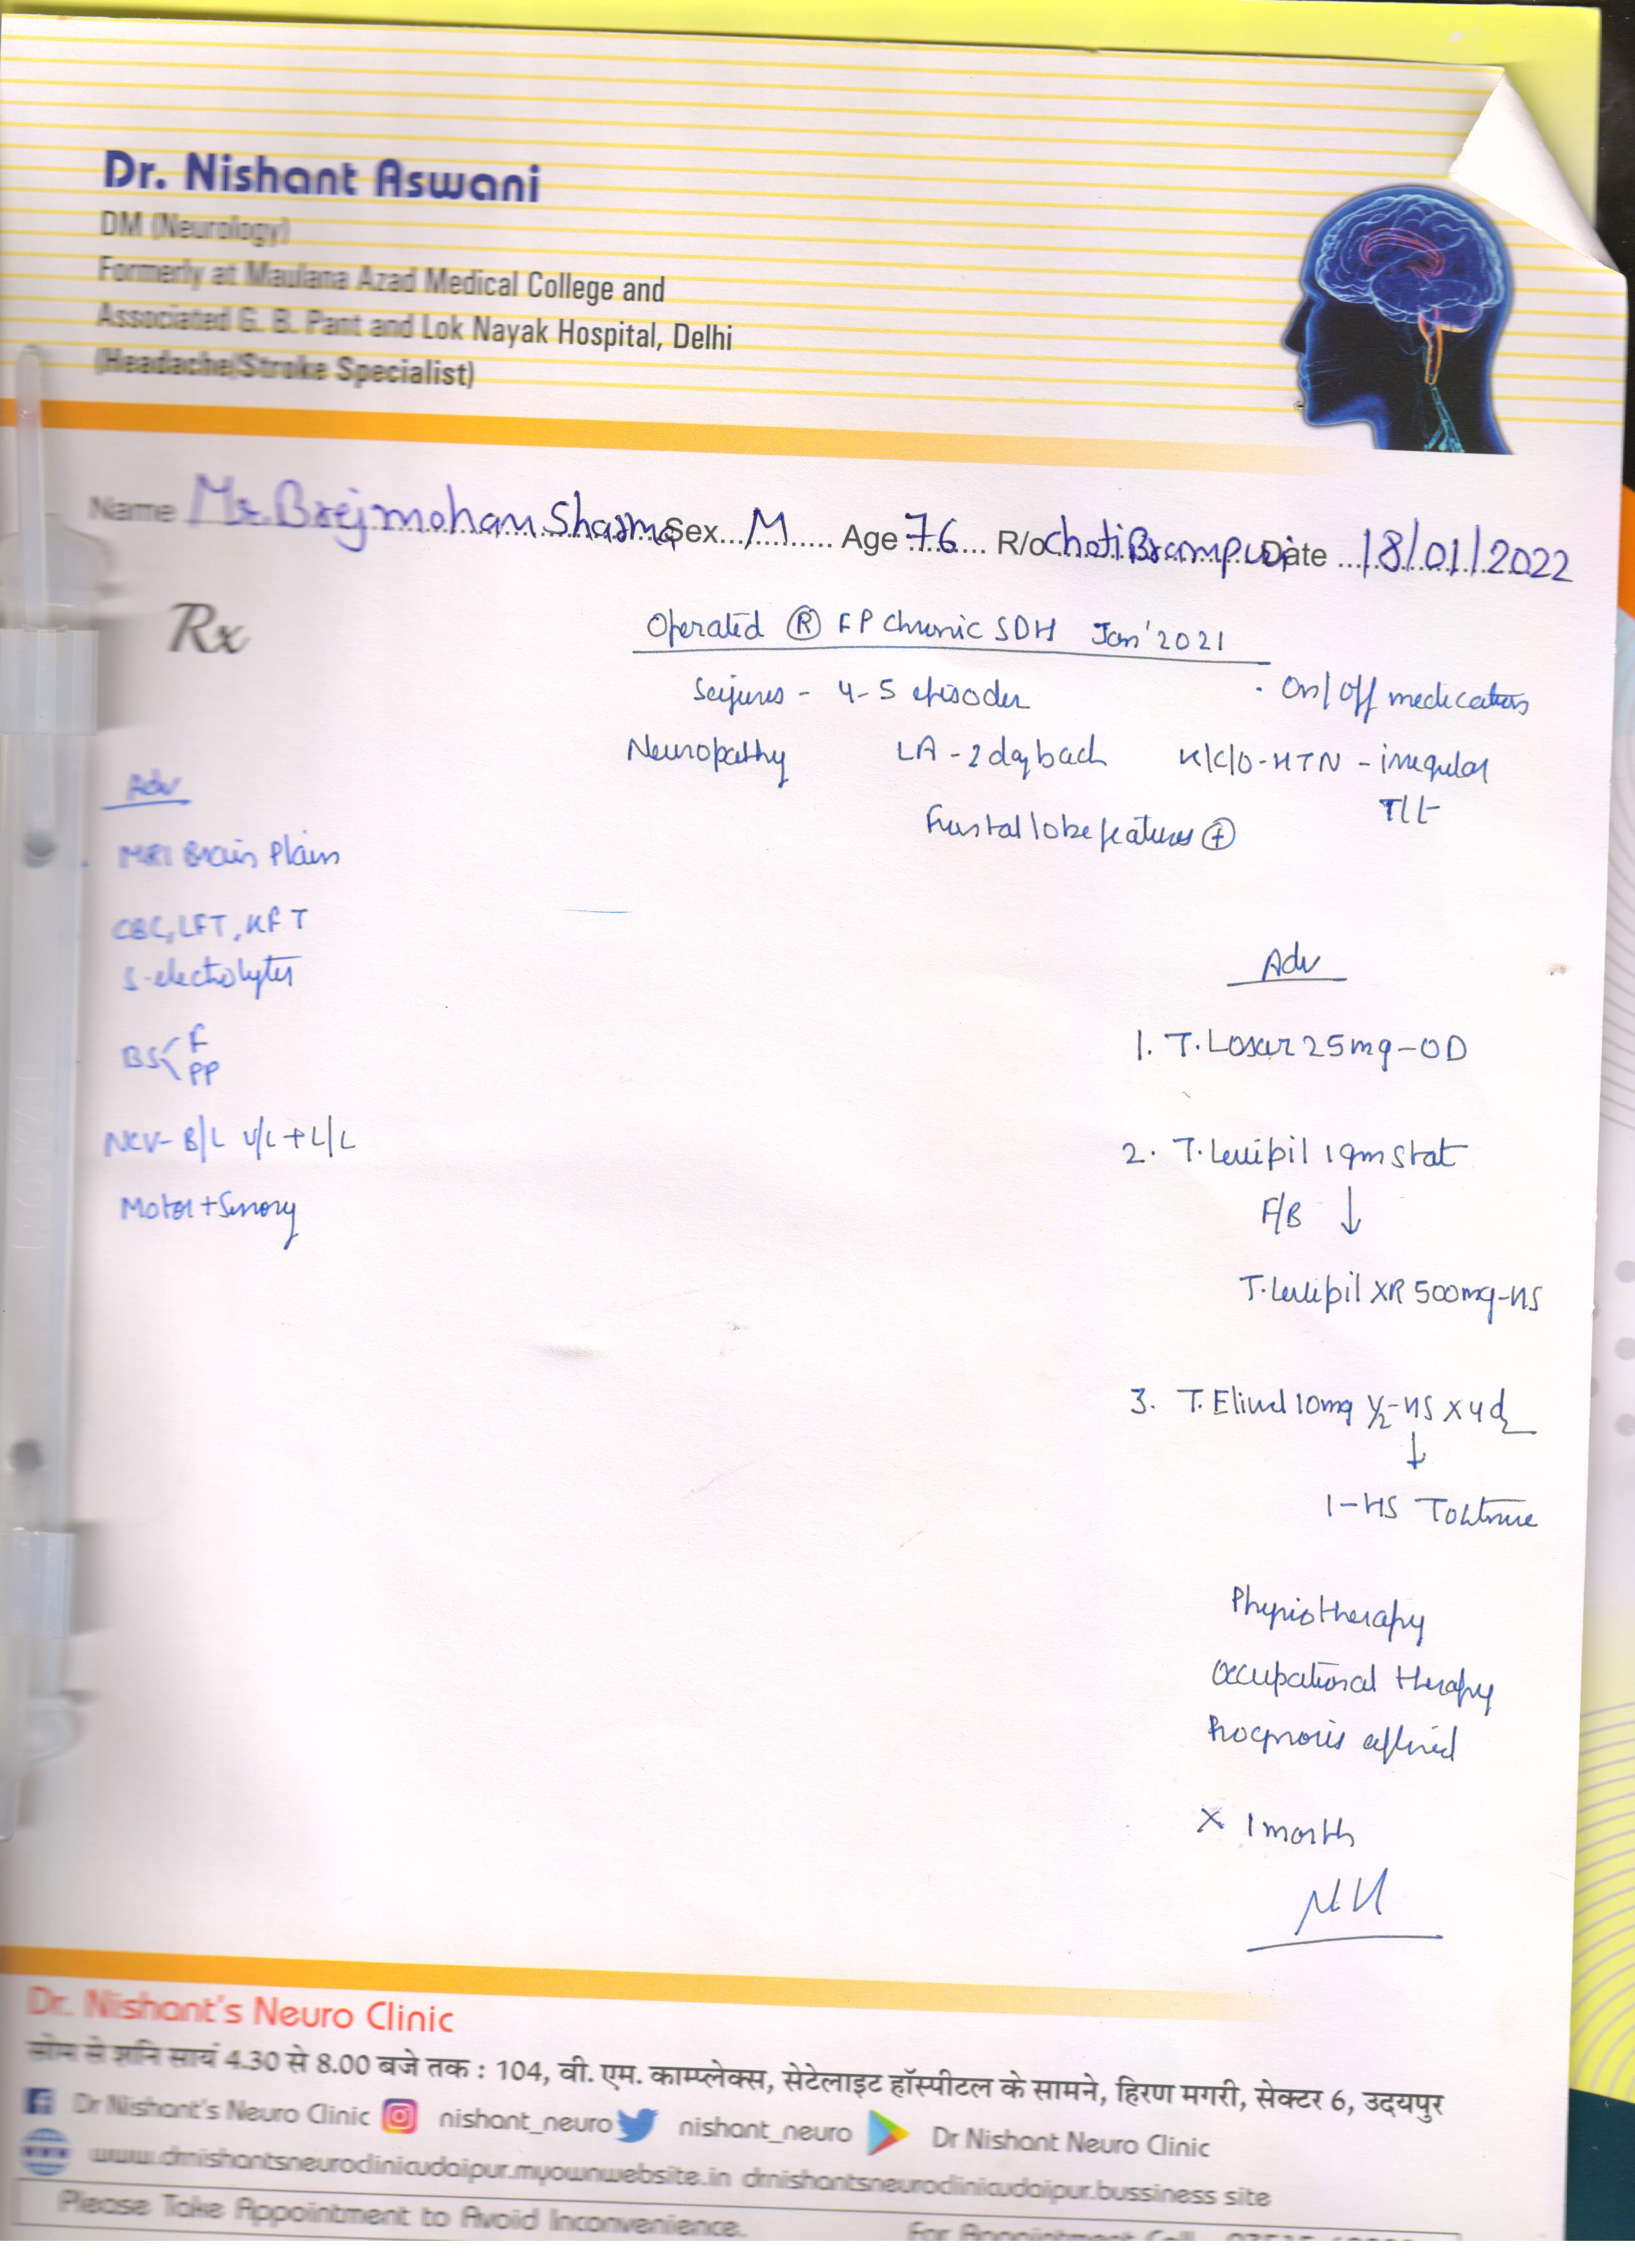 Dr. Nishant Aswani
DM (Neurology)
Formerly at Maulana Azad Medical College and
Associated G. B. Pant and Lok Nayak Hospital, Delhi
(Headache/Stroke Specialist)
Name Mr. Brejmohan Sharma Sex M Age 76 R/o Choti Brampuri Date 18/01/2022
Rx
Operated Ⓡ FP Chronic SDH Jan' 2021
Seizures - 4-5 episodes
. On/off medications
Neuropathy LA - 2 day back K/C/O - HTN - irregular
T/t
Frontal lobe features ⊕
Adv
MRI Brain Plain
CBC, LFT, KFT
S-electrolytes
BS< F
PP
NCV- B/L U/L + L/L
Motor + Sensory
Adv
1. T. Losar 25mg - OD
2. T. Levipil 1gm stat
F/B ↓
T. Levipil XR 500mg - HS
3. T. Eliwel 10mg ½ - HS x 4 d
↓
1 - HS To continue
Physiotherapy
Occupational therapy
Prognosis explained
X 1 month
Dr. Nishant's Neuro Clinic
सोम से शनि सायं 4.30 से 8.00 बजे तक : 104, वी. एम. काम्प्लेक्स, सेटेलाइट हॉस्पीटल के सामने, हिरण मगरी, सेक्टर 6, उदयपुर
Dr Nishant's Neuro Clinic nishant_neuro nishant_neuro Dr Nishant Neuro Clinic
www.drnishantsneuroclinicudaipur.myownwebsite.in drnishantsneuroclinicudaipur.bussiness site
Please Take Appointment to Avoid Inconvenience.
For Appointment Call